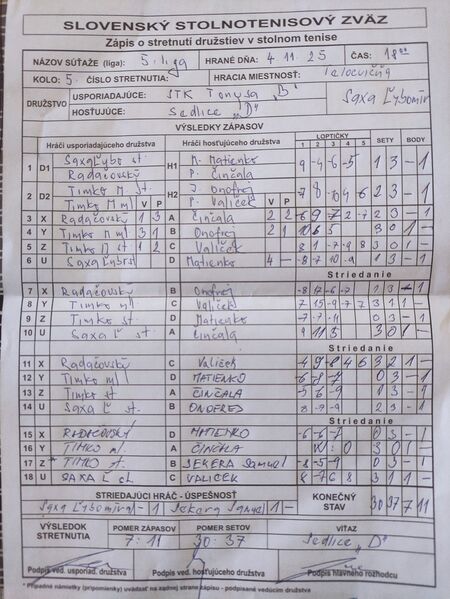 SLOVENSKÝ STOLNOTENISOVÝ ZVÄZ
Zápis o stretnutí družstiev v stolnom tenise
NÁZOV SÚŤAŽE (liga): 5. liga HRANÉ DŇA: 4 11. 25 ČAS: 18 00
KOLO: 5. ČÍSLO STRETNUTIA: HRACIA MIESTNOSŤ: Telocvičňa
DRUŽSTVO USPORIADAJÚCE: STK Tonysa "B" Saxa Ľubomír
HOSŤUJÚCE: Sedlice "D"
VÝSLEDKY ZÁPASOV
Hráči usporiadajúceho družstva Hráči hosťujúceho družstva LOPTIČKY SETY BODY
1 2 3 4 5
1 D1 st. H1 M. Matienko 9 -4 -6 -5 1 3 - 1
Radačovský P. Činčala
2 D2 Timko M st. H2 J. Onofrej 2 3 - 1
Timko M ml V P P. Valiček V P
3 X Radačovský 1 3 A Činčala 2 2
4 Y Timko M ml 3 1 B Onofrej 2 1 10 6 5 3 0 1 -
5 Z Timko M st 1 2 C Valiček 3 0 1 -
6 U D Matienko 4 - -8 -7 -10 -9 1 3 - 1
Striedanie
7 X Radačovský B Onofrej 1 3 - 1
8 Y Timko ml C Valiček 7 15 -9 -7 7 3 1 1 -
9 Z Timko st D Matienko -7 -7 -11 0 3 - 1
10 U Saxa Ľ st. A Činčala 9 11 5 3 0 1 -
Striedanie
11 X Radačovský C Valiček -4 9 8 -4 6 3 2 1 -
12 Y Timko ml D MATIENKO -6 -8 -7 0 3 - 1
13 Z Timko st A ČINČALA -5 -6 -9 3 - 1
14 U Saxa Ľ st. B ONOFREJ 8 -9 -9 2 3 - 1
Striedanie
15 X RADAČOVSKÝ D MATIENKO -6 -6 -7 0 3 - 1
16 Y TIMKO ml. A ČINČALA W : O 3 0 1 -
17 Z TIMKO st. B SEKERA Samuel -8 -5 -9 0 3 - 1
18 U SAXA Ľ st C VALIČEK 8 -7 6 8 3 1 1 -
STRIEDAJÚCI HRÁČ - ÚSPEŠNOSŤ KONEČNÝ STAV 30 37 7 11
- 1 Sekera Samuel 1 -
VÝSLEDOK STRETNUTIA POMER ZÁPASOV POMER SETOV VÍŤAZ
7 : 11 30 : 37 Sedlice "D"
Podpis ved. usporiad. družstva Podpis ved. hosťujúceho družstva Podpis hlavného rozhodcu
* Prípadné námietky (pripomienky) uvádzať na zadnej strane zápisu - podpísané vedúcim družstva